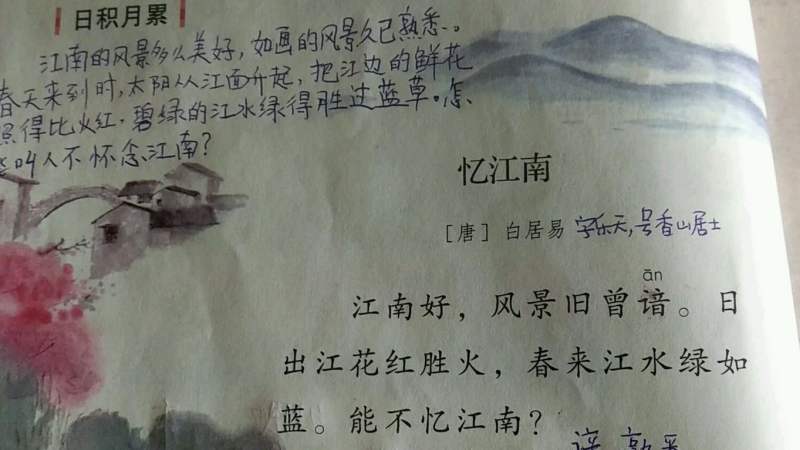 日积月累
江南的风景多么美好，如画的风景久已熟悉。
春天来到时，太阳从江面升起，把江边的鲜花
照得比火红，碧绿的江水绿得胜过蓝草。怎
叫人不怀念江南？
忆江南
［唐］白居易 字乐天，号香山居士
ān
江南好，风景旧曾谙。日
出江花红胜火，春来江水绿如
蓝。能不忆江南？
谙 熟悉